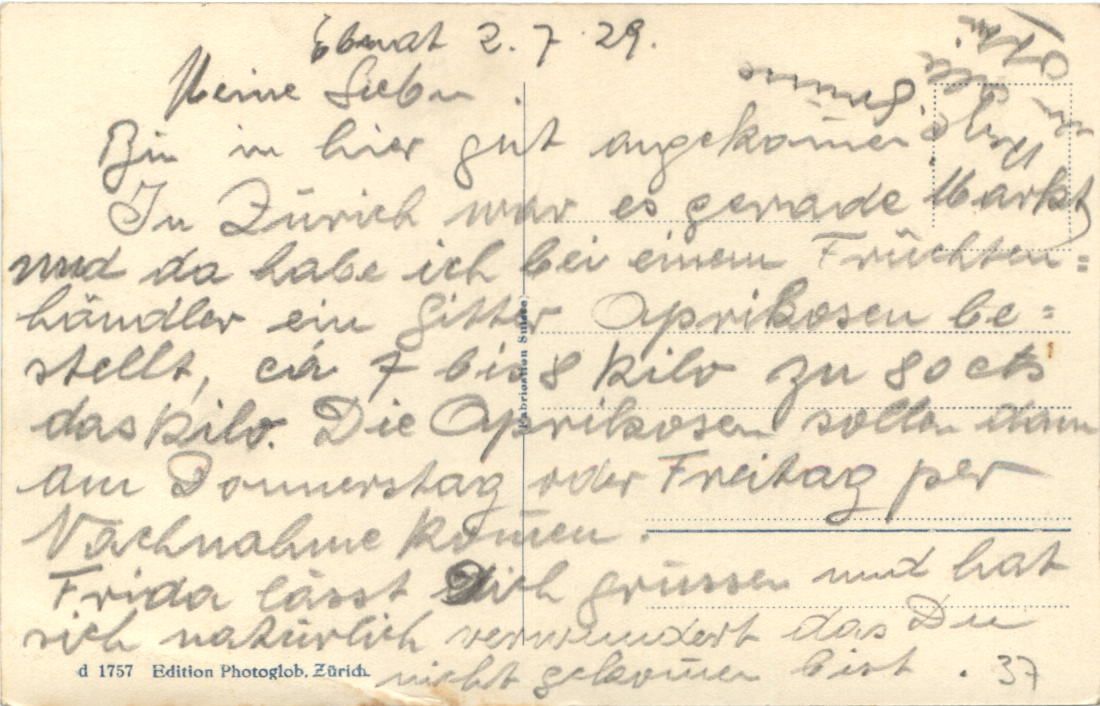 Ebnat 2.7.29.
Meine Lieben.
Bin in hier gut angekom̄en.
In Zürich war es gerade Markt
und da habe ich bei einem Früchten=
händler ein Gitter Aprikosen be=
stellt, cá 7 bis 8 Kilo zu 80 cts
das Kilo. Die Aprikosen sollen dann
am Donnerstag oder Freitag per
Nachnahme kom̄en.
Frida lässt Dich grüssen und hat
sich natürlich verwundert das Du
nicht gekom̄en bist. 37
d 1757 Edition Photoglob. Zürich
Fabrication Suisse